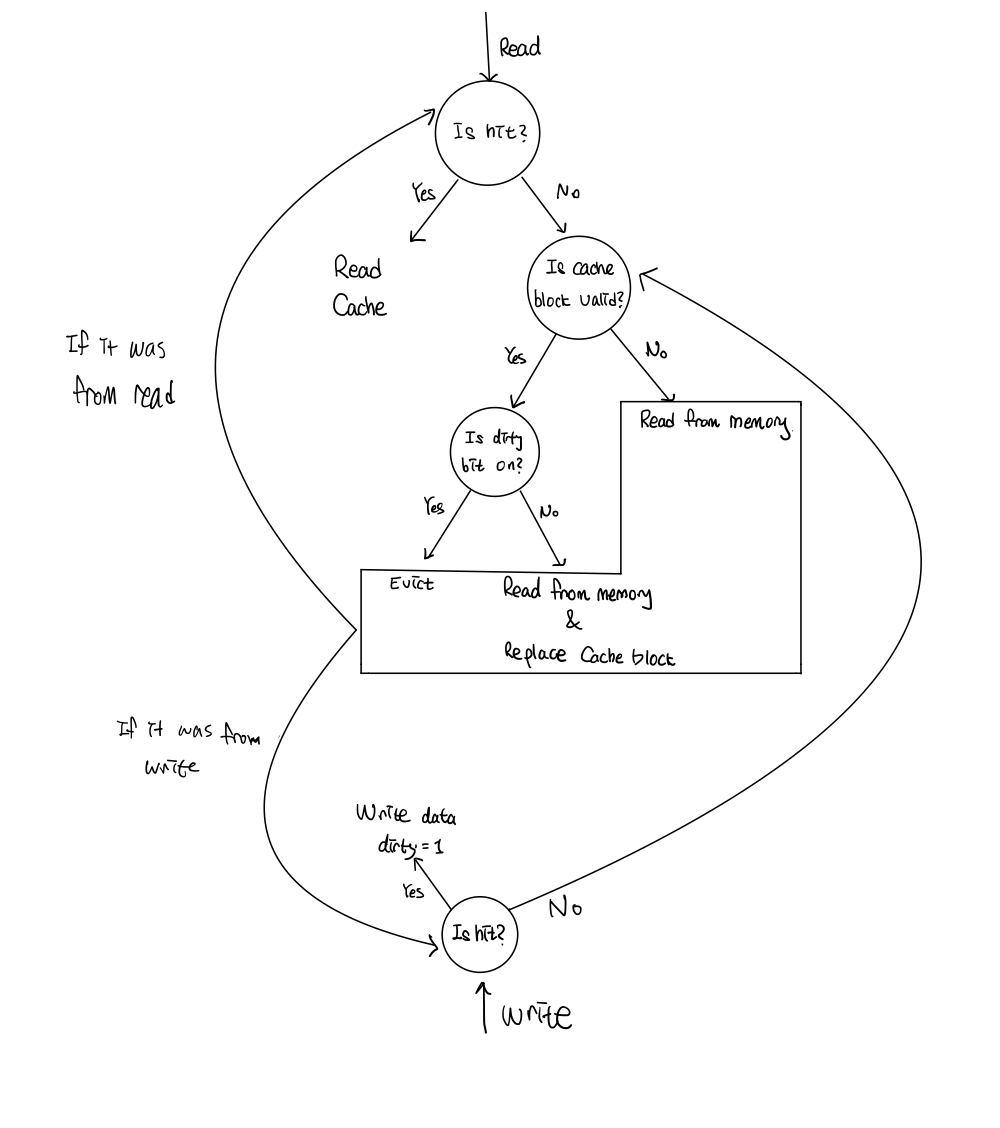 Read
Is hit?
Yes
No
Read
Cache
Is cache
block valid?
If it was
from read
Yes
No
Read from memory
Is dirty
bit on?
Yes
No
Evict
Read from memory
&
Replace Cache block
If it was from
write
Write data
dirty = 1
Yes
No
Is hit?
Write